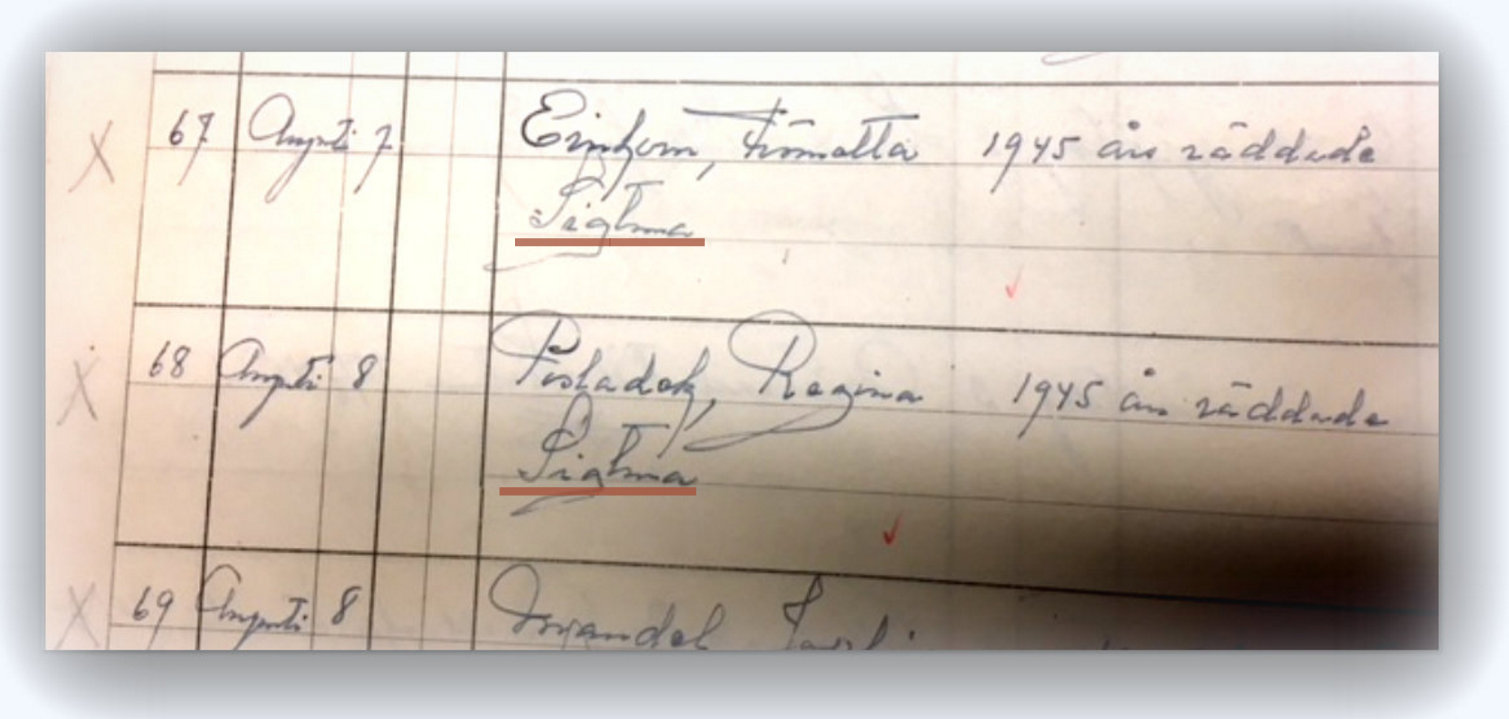 67 Augusti 7 Einhorn, 1945 års räddade
Sigtuna
68 Augusti 8 Posladek, Regina 1945 års räddade
Sigtuna
69 Augusti 8